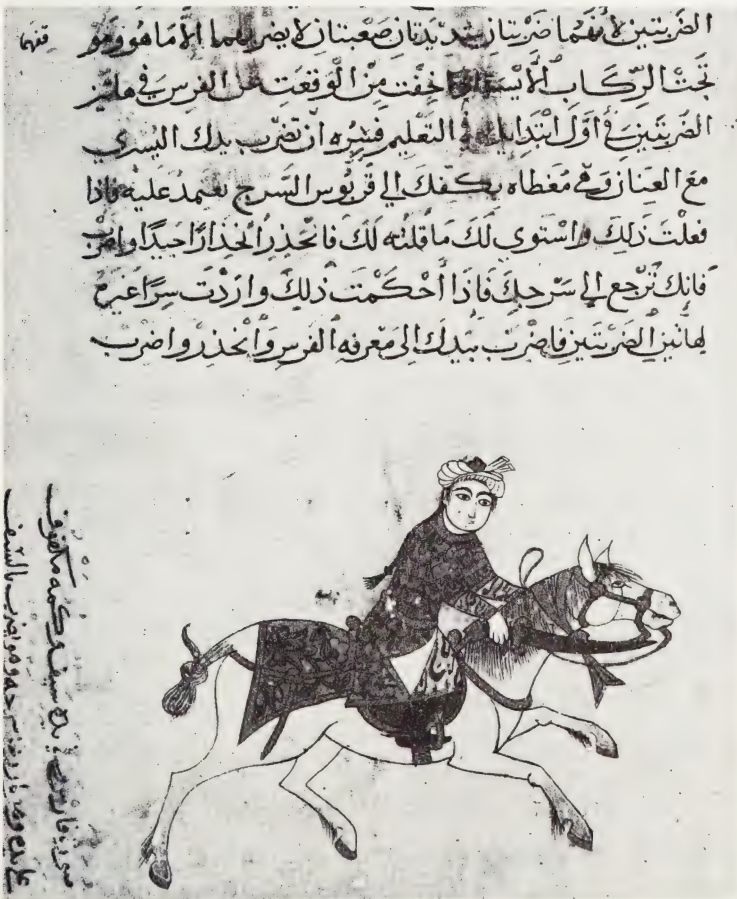 الضربتين لأنهما ضربتان شديدتان صعبتان لا يضر بهما الا ماهو وهو
تحت الركاب الأيسر خفت من الوقعت عن الفرس في هاتين
الضربتين في أول ابتدايك في التعليم فشره ان تضرب بيدك اليسرى
مع العنان وهي مغطاه بكفك الى قربوس السرج تعتمد عليه فاذا
فعلت ذلك واستوى لك ما قلته لك فانحذر انحذارا جيدا واضرب
فإنك ترجع الى سرجك فاذا أحكمت ذلك واردت سرا غيره
لهاتين الضربتين فاضرب بيدك الى معرفه الفرس وانحذر واضرب
فارس بيده سيف وكمه